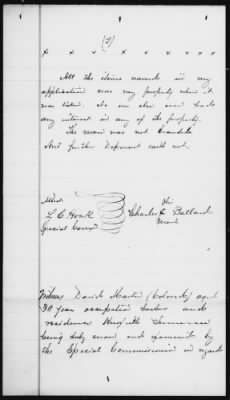 (3)
x x x x x x x x x
All the items named in my
application was my property when it
was taken. No one else ever had
any interest in any of the property.
The mare was not branded
And further Deponent saith not.
Attest his
L. E. Houk Charles x Ballard
Special Comr mark
Witness David Martin (Colored) aged
30 years occupation and
residence Knoxville Tennessee
being duly sworn and examined by
the Special Commissioner in regards